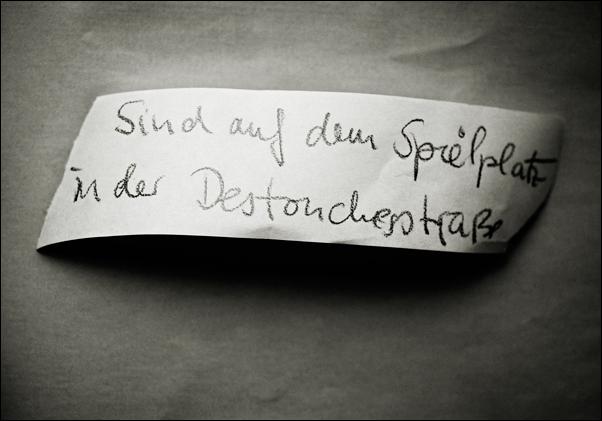 Sind auf dem Spielplatz
in der Destouchesstraße